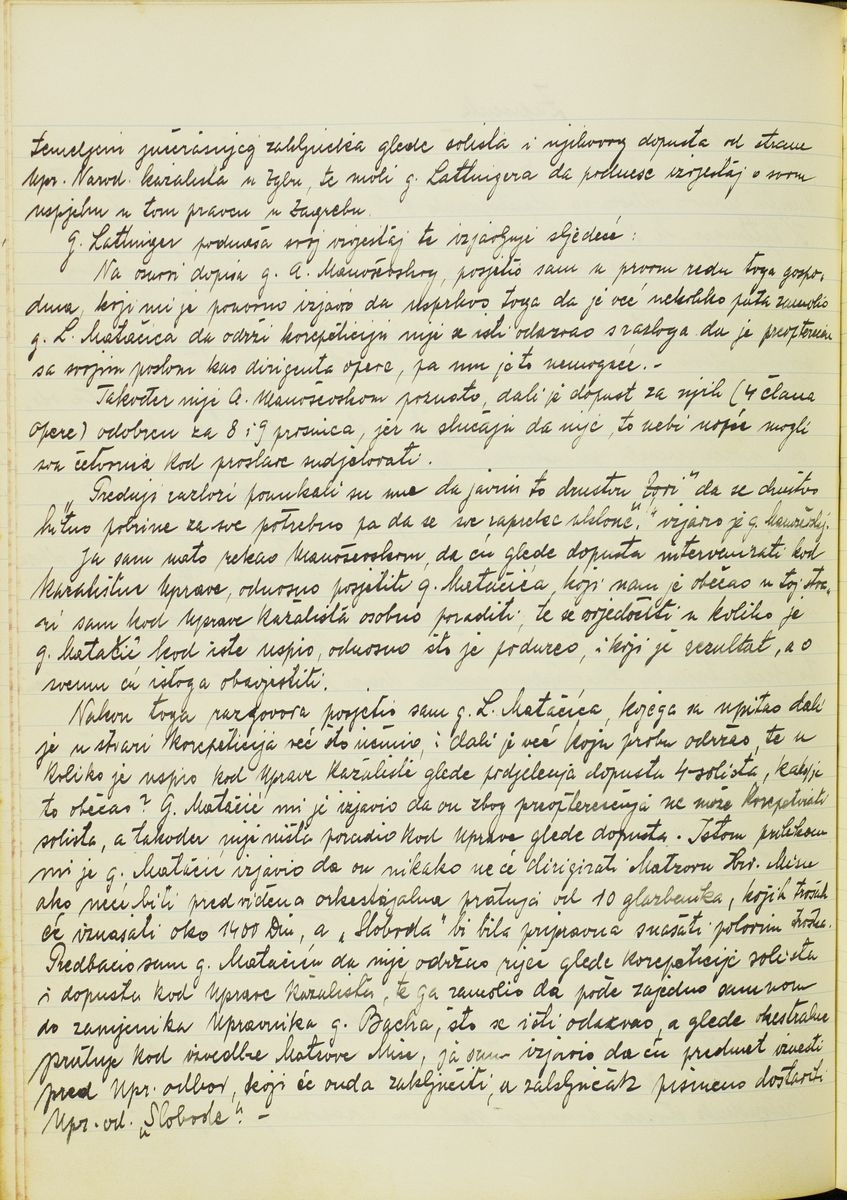 temeljem jučerašnjeg zaključka glede solista i njihovog dopusta od strane
Upr. Narod. kazališta u Zgbu, te moli g. Lathnigera da podnese izvještaj o svom
uspjehu u tom pravcu u Zagrebu.
G. Lathniger podnaša svoj izvještaj te izjavljuje sljedeće:
Na osnovi dopisa g. A. Manoševskog, posjetio sam u prvom redu toga gospo-
dina, koji mi je ponovno izjavio da usprkos toga da je već nekoliko puta zamolio
g. L. Matačića da održi korepeticiju nije se isti odazvao s razloga da je preopterećen
sa svojim poslom kao dirigenta opere, pa mu je to nemoguće. -
Također nije A. Manoševskom poznato, dali je dopust za njih (4 člana
opere) odobren za 8 i 9 prosinca, jer u slučaju da nije, to nebi mogli
sva četvorica kod proslave sudjelovati.
„Predniji razlozi ponukali su me da javim to društvu „Zori" da se društvo
hitno pobrine za sve potrebno pa da se sve zapreke uklone", izjavio je g. Manoševski.
Ja sam nato rekao Manoševskom, da ću glede dopusta intervenirati kod
Kazalištne Uprave, odnosno posjetiti g. Matačića, koji nam je obećao u toj stva-
ri sam kod Uprave Kazališta osobno poraditi, te se osvjedočiti u koliko je
g. Matačić kod iste uspio, odnosno što je poduzeo, i koji je rezultat, a o
svemu ću istoga obavjestiti.
Nakon toga razgovora posjetio sam g. L. Matačića, kojega sa upitao dali
je u stvari korepeticija već što učinio, i dali je već koju probu održao, te u
koliko je uspio kod Uprave Kazališt glede podjelenja dopusta 4 solista, kako je
to obećao? G. Matačić mi je izjavio da on zbog preopterećenja ne može korepetirati
solista, a također nije ništa poradio kod Uprave glede dopusta. Istom prilikom
mi je g. Matačić izjavio da on nikako neće dirigirati Matzovu Hrv. Misu
ako neće biti predviđena orkestralna pratnja od 10 glazbenika, kojih trošak
će iznašati oko 1400 Din, a „Sloboda" bi bila pripravna snašati polovinu troška.
Predbacio sam g. Matačiću da nije održao riječ glede korepeticije solista
i dopusta kod Uprave Kazališta, te ga zamolio da pođe zajedno samnom
do zamjenika Upravnika g. Bacha, što se isti odazvao, a glede orkestralne
pratnje kod izvedbe Matzove Mise, ja sam izjavio da ću predmet iznesti
pred Upr. odbor, koji će onda zaključiti, a zaključak pismeno dostaviti
Upr. od. „Slobode". -